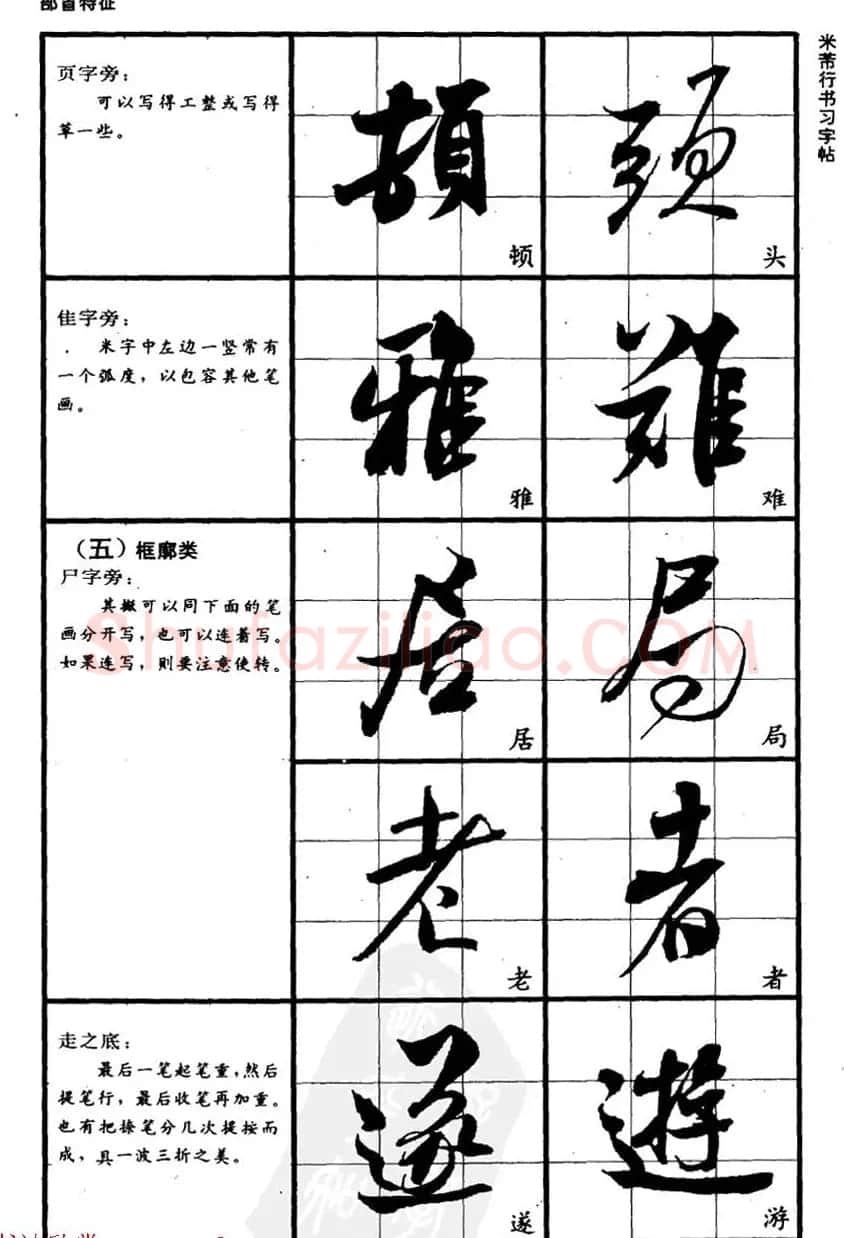 部首特征
米芾行书习字帖
页字旁：
可以写得工整或写得
草一些。
頓
顿
頭
头
佳字旁：
米字中左边一竖常有
一个弧度，以包容其他笔
画。
雅
雅
難
难
（五）框廓类
尸字旁：
其撇可以同下面的笔
画分开写，也可以连着写。
如果连写，则要注意使转。
Shufaziliao.COM
居
居
局
局
老
老
者
者
走之底：
最后一笔起笔重，然后
提笔行，最后收笔再加重。
也有把捺笔分几次提按而
成，具一波三折之美。
遂
遂
遊
游